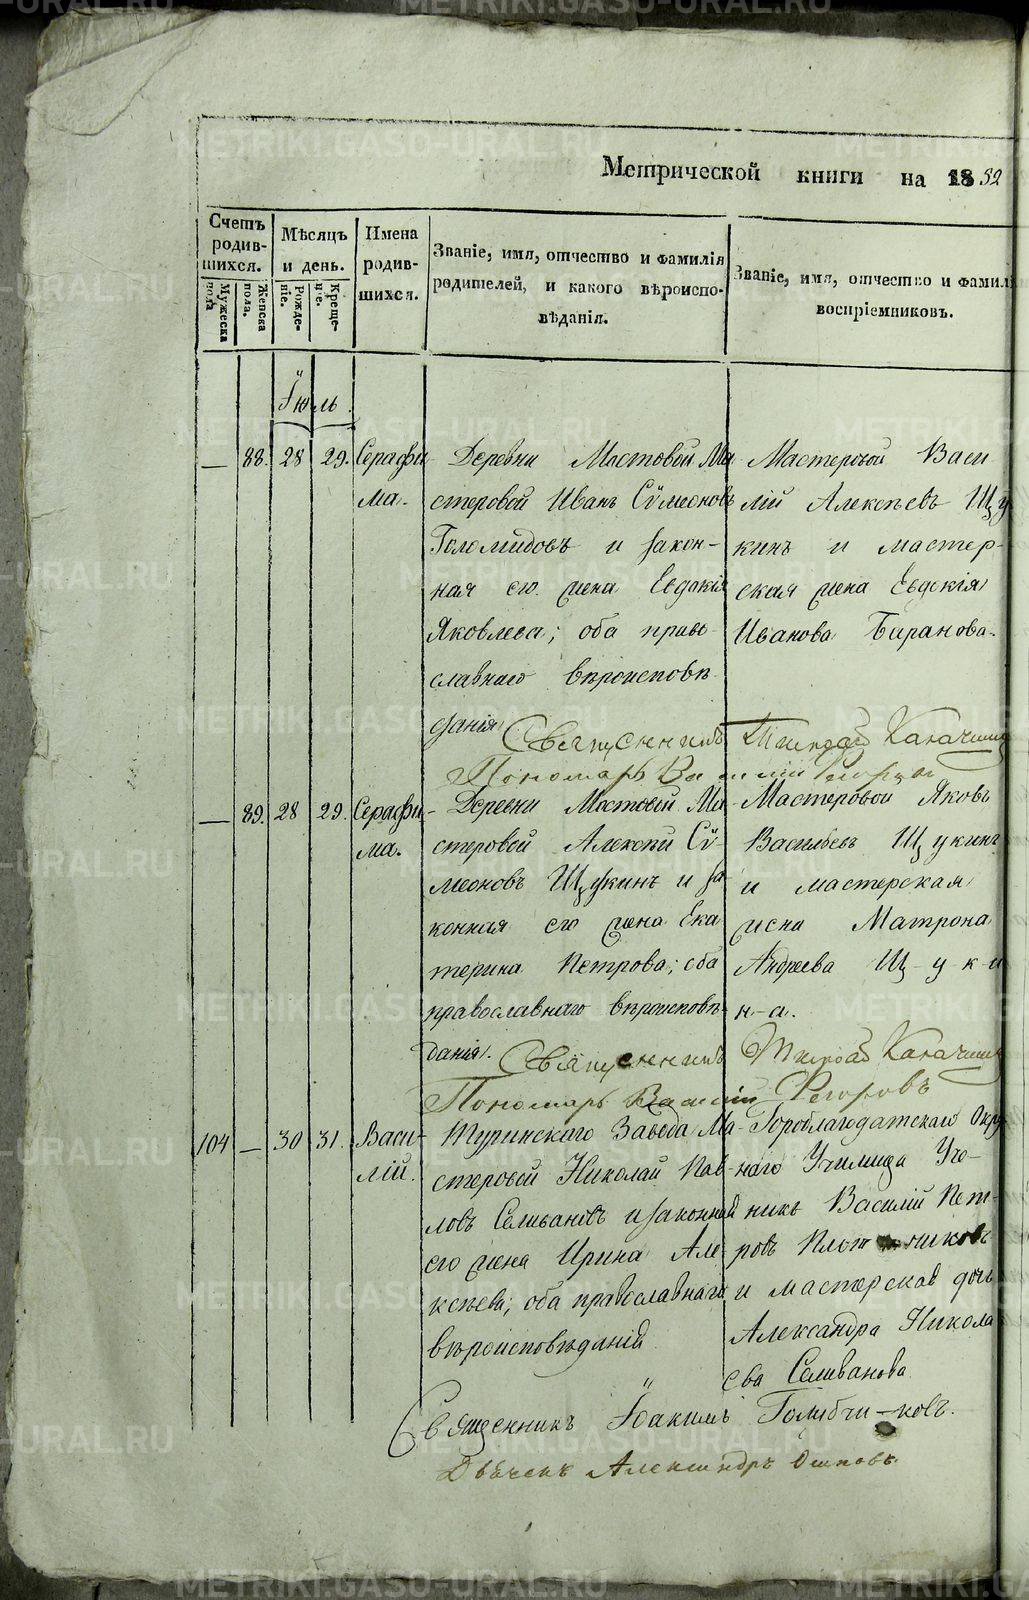 METRIKI.GASO-URAL.RU
Метрической книги на 1852
Счетъ родив-шихся.
Мужеска пола
Женска пола.
Мѣсяцъ и день.
Рожде-нiе.
Креще-нiе.
Имена родив-шихся.
Званiе, имя, отчество и фамилiя родителей, и какого вѣроиспо-вѣданiя.
Званiе, имя, отчество и фамилi воспрiемниковъ.
Iюль.
— 88. 28 29. Серафи-
ма.
Деревни Мостовой Ма
стеровой Иванъ Сѵмеоновъ
Голомидовъ и закон-
ная его жена Евдокiя
Яковлева; оба право-
славнаго вѣроисповѣ
данiя
Мастеровой Васи
лiй Алексѣевъ Щу
кинъ и мастер-
ская жена Евдокiя
Иванова Баранова.
Священникъ
Пономарь Василiй Егоровъ
— 89. 28 29. Серафи-
ма.
Деревни Мостовой Ма-
стеровой Алексѣй Сѵ-
меоновъ Щукинъ и за-
конная его жена Ека
терина Петрова; оба
православнаго вѣроисповѣ-
данiя.
Мастеровой Яковъ
Васильевъ Щукинъ
и мастерская
жена Матрона
Андреева Щ-у-к-и
н-а.
Священникъ
Пономарь Василiй Егоровъ
104 — 30 31. Васи-
лiй.
Туринскаго Завода Ма-
стеровой Николай Пав-
ловъ Селивановъ и законная
его жена Ирина Але
ксѣева; оба православнаго
вѣроисповѣданiя
Гороблагодатскаго Окру
жнаго Училища Уче-
никъ Василiй Пет-
ровъ Плотниковъ
и мастерская дочь
Александра Никола
ева Селиванова
Священникъ Iоакимъ Голубчи-ковъ.
Дьячекъ Александръ Осиповъ.